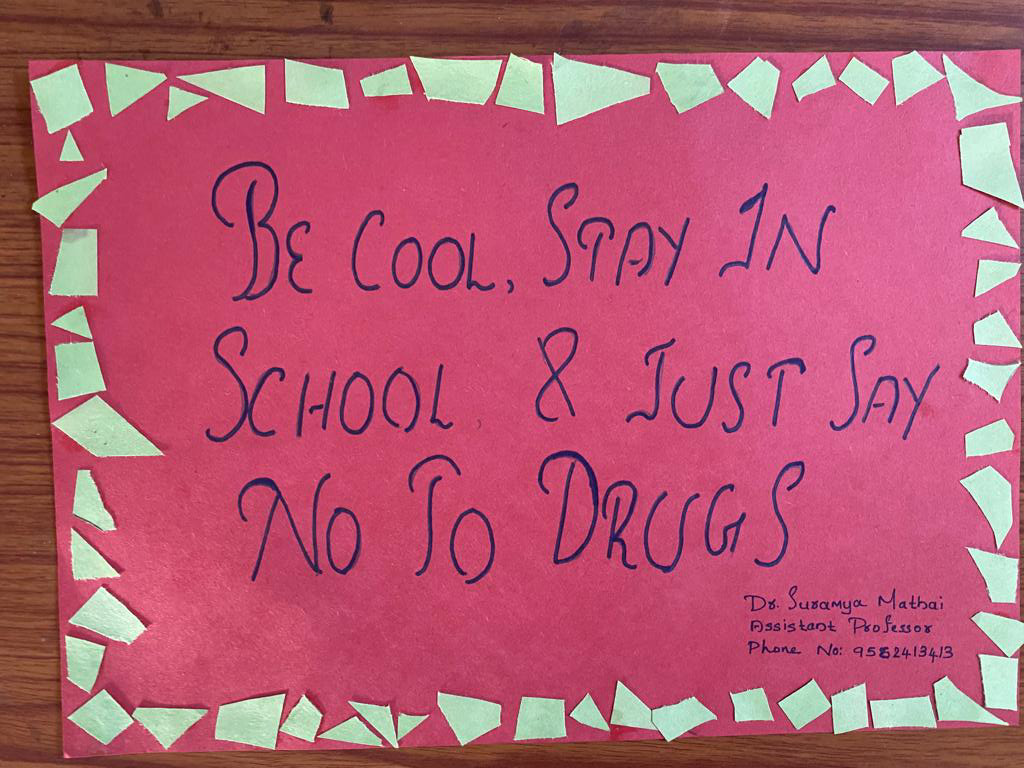 BE COOL, STAY IN
SCHOOL. & JUST SAY
NO TO DRUGS
Dr. Suramya Mathai
Assistant Professor
Phone No: 9582413413